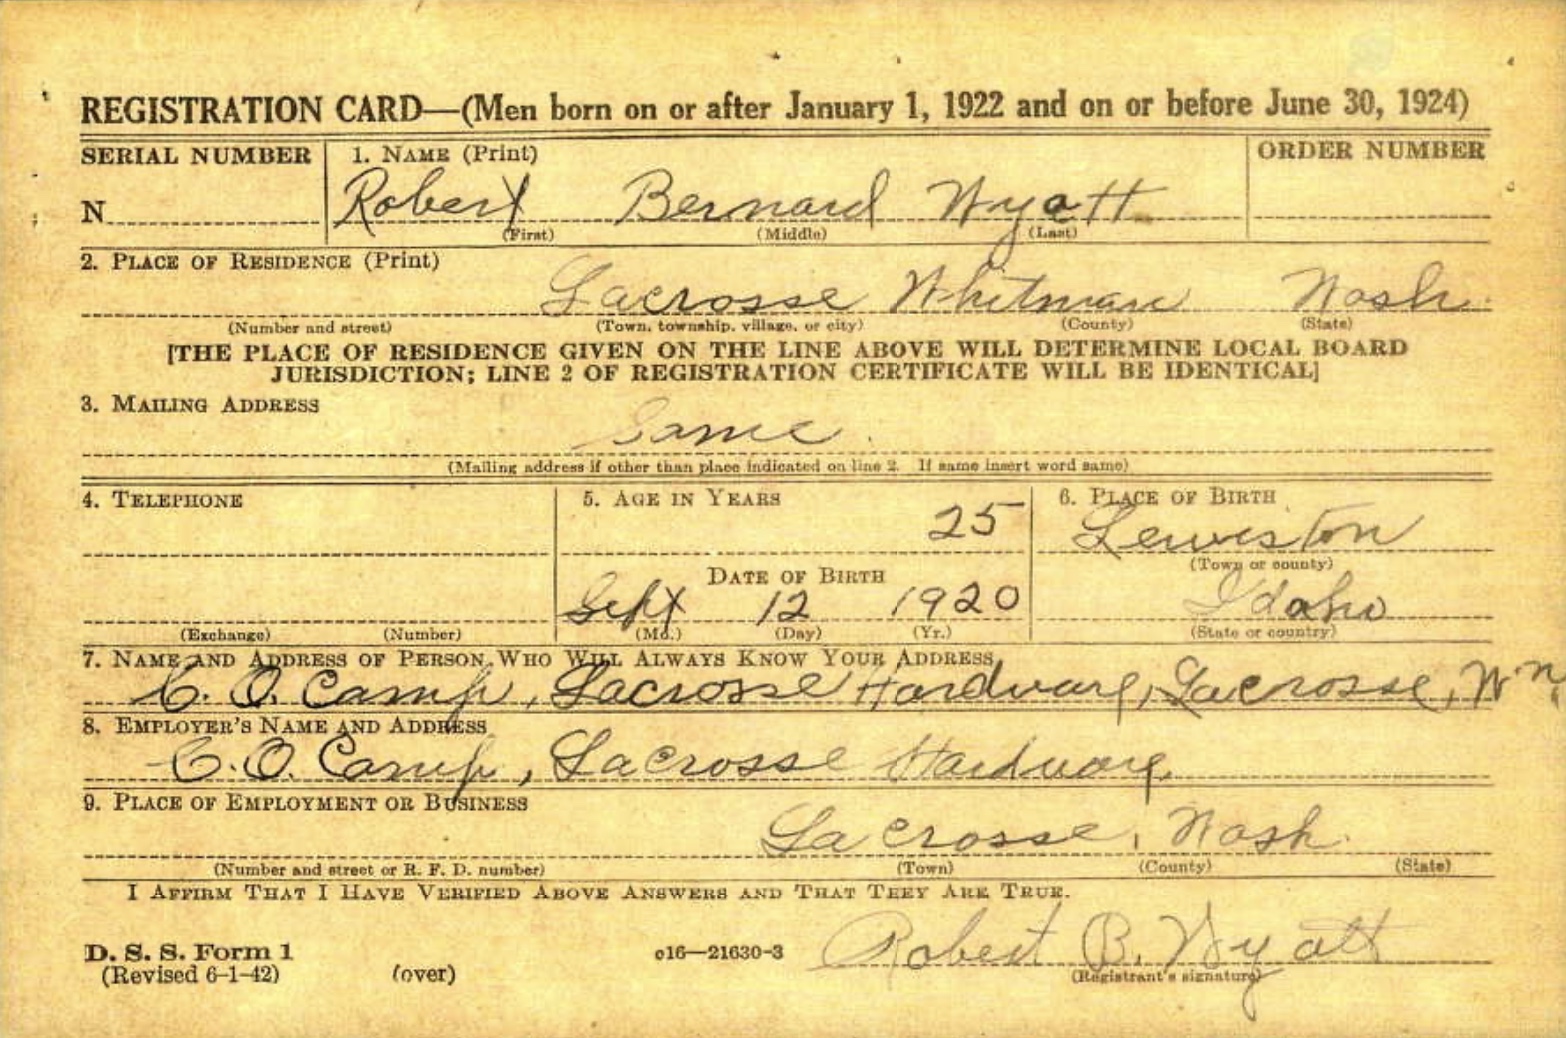 REGISTRATION CARD—(Men born on or after January 1, 1922 and on or before June 30, 1924)
SERIAL NUMBER 1. NAME (Print) ORDER NUMBER
N Robert Bernard Wyatt
(First) (Middle) (Last)
2. PLACE OF RESIDENCE (Print)
Lacrosse Whitman Wash.
(Number and street) (Town, township, village, or city) (County) (State)
[THE PLACE OF RESIDENCE GIVEN ON THE LINE ABOVE WILL DETERMINE LOCAL BOARD
JURISDICTION; LINE 2 OF REGISTRATION CERTIFICATE WILL BE IDENTICAL]
3. MAILING ADDRESS
Same.
(Mailing address if other than place indicated on line 2. If same insert word same)
4. TELEPHONE 5. AGE IN YEARS 6. PLACE OF BIRTH
25 Lewiston
(Town or county)
DATE OF BIRTH
Sept 12 1920 Idaho
(Exchange) (Number) (Mo.) (Day) (Yr.) (State or country)
7. NAME AND ADDRESS OF PERSON WHO WILL ALWAYS KNOW YOUR ADDRESS
C. O. Camp, Lacrosse Hardware, Lacrosse, Wn.
8. EMPLOYER'S NAME AND ADDRESS
C. O. Camp, Lacrosse Hardware
9. PLACE OF EMPLOYMENT OR BUSINESS
La Crosse, Wash.
(Number and street or R. F. D. number) (Town) (County) (State)
I AFFIRM THAT I HAVE VERIFIED ABOVE ANSWERS AND THAT THEY ARE TRUE.
D. S. S. Form 1 o16—21630-3 Robert B. Wyatt
(Revised 6-1-42) (over) (Registrant's signature)